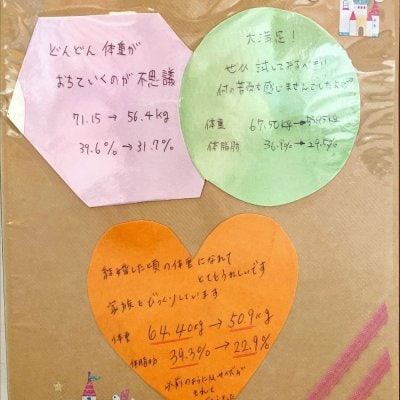 どんどん体重が
おちていくのが不思議
71.15 → 56.4kg
39.6% → 31.7%
大満足！
ぜひ試してみるべき!!
何の苦痛も感じませんでした
体重 67.50kg →
体脂肪 → 29.5%
結婚した頃の体重になれて
とてもうれしいです
家族もびっくりしています
体重 64.40kg → 50.9kg
体脂肪 39.3% → 22.9%
以前のようにはいサイズが